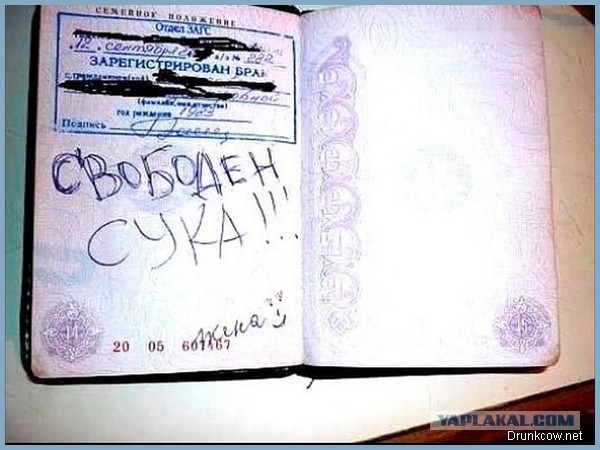 СЕМЕЙНОЕ ПОЛОЖЕНИЕ
Отдел ЗАГС
12 сентября а/з № 282
ЗАРЕГИСТРИРОВАН БРАК
(фамилия, имя, отчество)
год рождения 1983
Подпись
СВОБОДЕН
СУКА!!!
жена :)
14
20 05 601467
15
YAPLAKAL.COM
Drunkcow.net